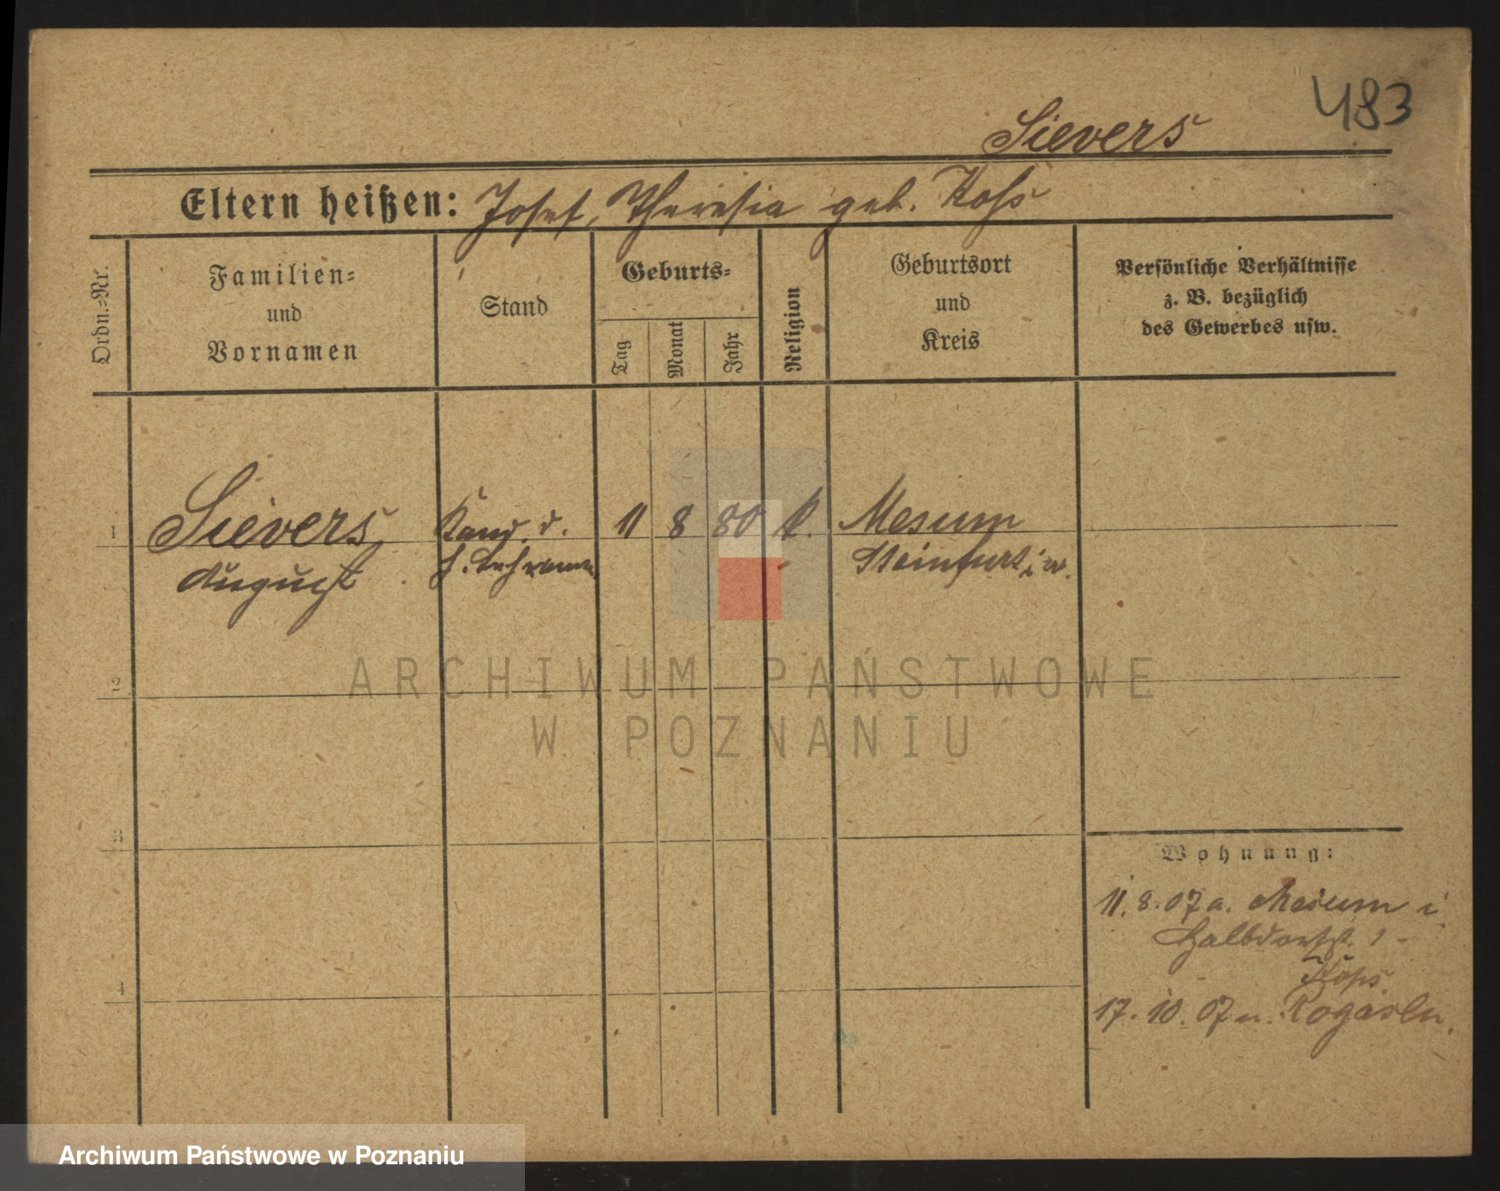 483
Sievers
Eltern heißen: Josef, Theresia geb. Koss
Ordn.-Nr.
Familien-
und
Vornamen
Stand
Geburts-
Tag
Monat
Jahr
Religion
Geburtsort
und
Kreis
Persönliche Verhältnisse
z. B. bezüglich
des Gewerbes usw.
1
Sievers
August
Kand. d.
h. Lehramts
11
8
80
k.
Mesum
Steinfurt i. w.
2
3
4
Wohnung:
11. 8. 07 a. Mesum i
Halbdorfst.
17. 10. 07 n. Rogasen.
ARCHIWUM PAŃSTWOWE
W POZNANIU
Archiwum Państwowe w Poznaniu